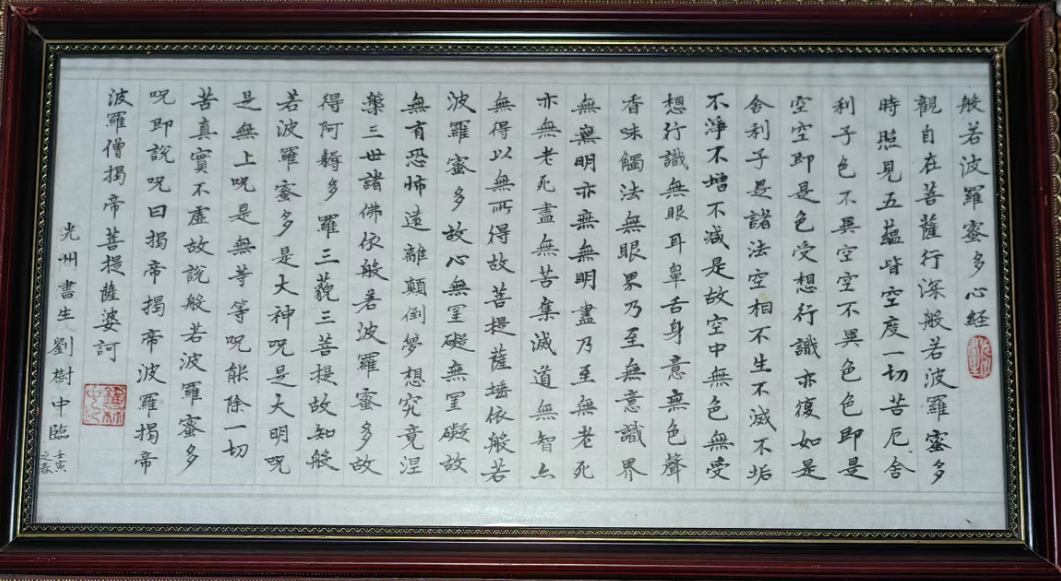 般若波羅蜜多心経
觀自在菩薩行深般若波羅蜜多
時照見五蘊皆空度一切苦厄舍
利子色不異空空不異色色即是
空空即是色受想行識亦復如是
舍利子是諸法空相不生不滅不垢
不淨不増不減是故空中無色無受
想行識無眼耳鼻舌身意無色聲
香味觸法無眼界乃至無意識界
無無明亦無無明盡乃至無老死
亦無老死盡無苦集滅道無智亦
無得以無所得故菩提薩埵依般若
波羅蜜多故心無罣礙無罣礙故
無有恐怖遠離顛倒夢想究竟涅
槃三世諸佛依般若波羅蜜多故
得阿耨多羅三藐三菩提故知般
若波羅蜜多是大神呪是大明呪
是無上呪是無等等呪能除一切
苦真實不虛故說般若波羅蜜多
呪即說呪曰揭帝揭帝波羅揭帝
波羅僧揭帝菩提薩婆訶
光州書生劉樹中臨壬寅
之春